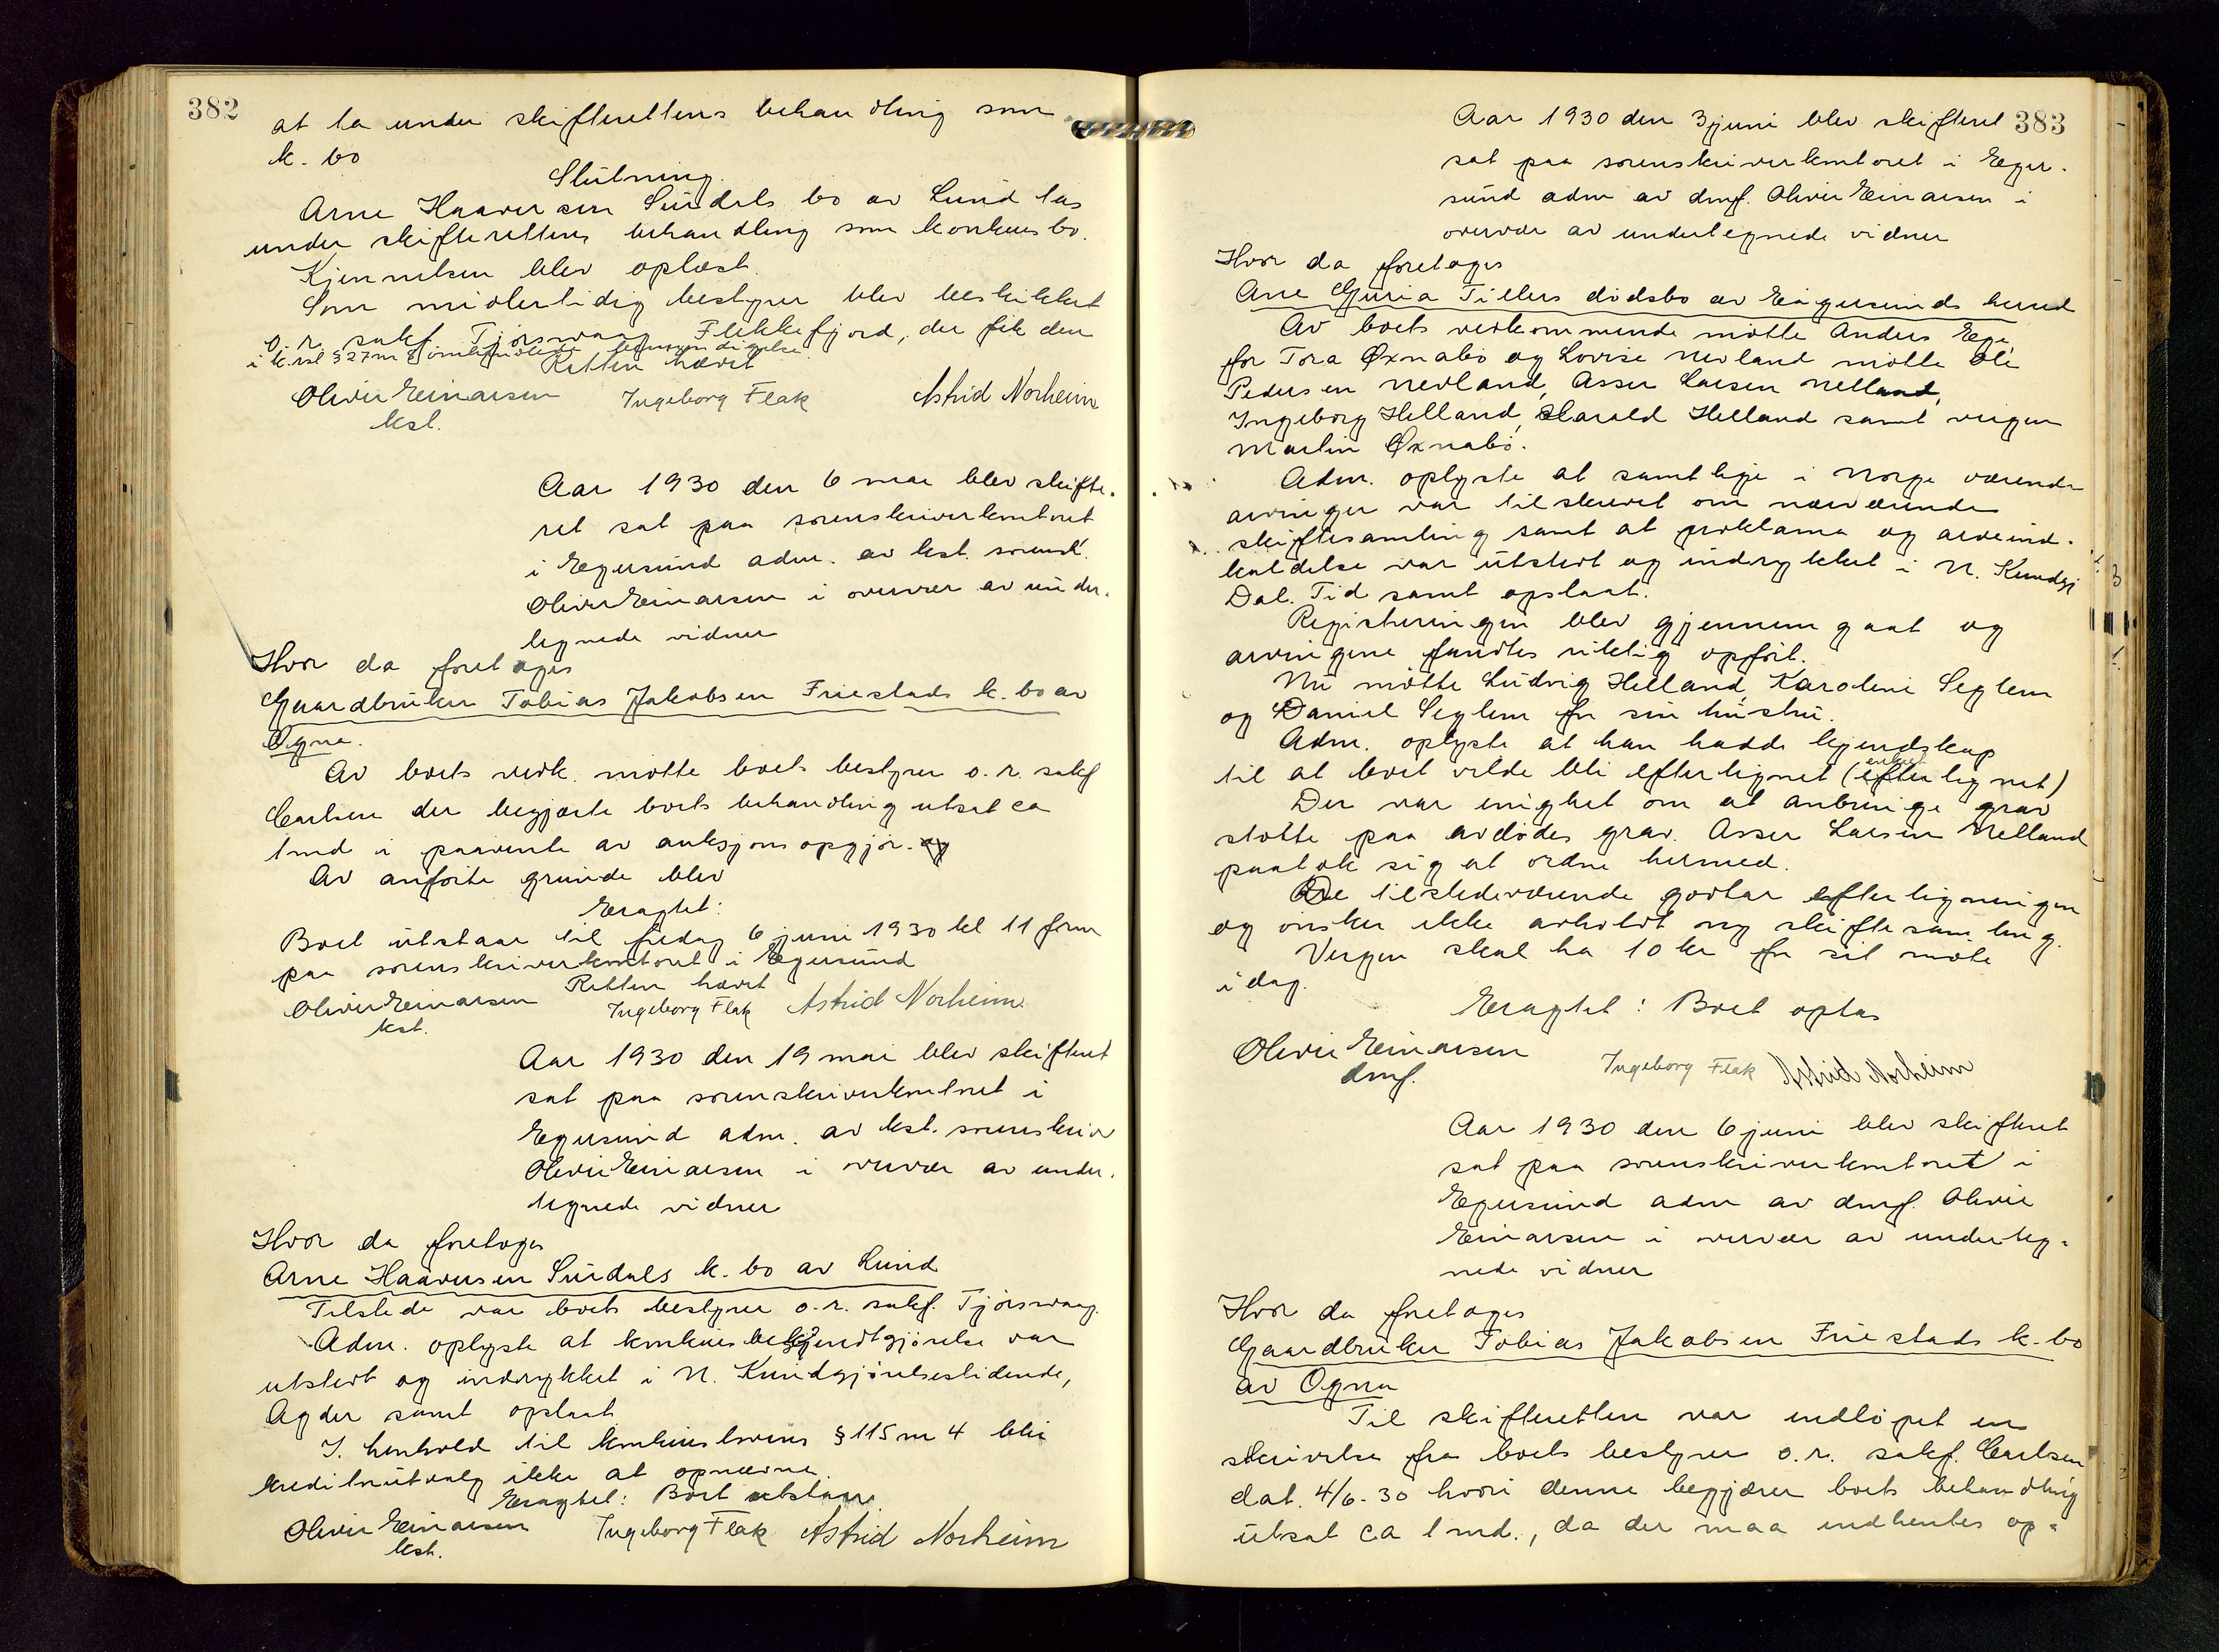 382
at ta under skifterettens behandling som
k. bo
Slutning.
Arne Haaversen Surdals bo av Lund tas
under skifterettens behandling som konkursbo.
Kjennelsen blev oplæst.
Som midlertidig bestyrer blev beskikket
o. r. sakf. Tjørsvaag Flekkefjord, der fik den
i k.rsl § 27 nr 2 omhandlede bemyndigelse.
Retten hævet
Olivir Einarsen Ingeborg Flak Astrid Norheim
kst.
Aar 1930 den 6 mai blev skifte-
ret sat paa sorenskriverkontoret
i Egersund adm. av kst. sorenskr.
Olivir Einarsen i overvær av under-
tegnede vidner
Hvor da foretoges
Gaardbruker Tobias Jakobsen Friestads k. bo av
Ogna.
Av boets vedk. møtte boets bestyrer o. r. sakf
Carlsen der begjærte boets behandling utsat ca
1 md i paavente av auksjonsopgjør. og
Av anførte grunde blev
Eragtet:
Boet utstaar til fredag 6 juni 1930 kl 11 form
paa sorenskriverkontoret i Egersund
Retten hævet
Olivir Einarsen Ingeborg Flak Astrid Norheim
kst.
Aar 1930 den 19 mai blev skifteret
sat paa sorenskriverkontoret i
Egersund adm. av kst. sorenskriv
Olivir Einarsen i overvær av under-
tegnede vidner
Hvor da foretoges
Arne Haaversen Surdals k. bo av Lund
Tilstede var boets bestyrer o. r. sakf. Tjørsvaag.
Adm. oplyste at konkursbekjendtgjørelse var
utstedt og indrykket i N. Kundgjørelsestidende,
Agder samt opslaat
I henhold til konkurslovens § 115 nr 4 blir
kreditorutvalg ikke at opnævne.
Eragtet: Boet utstaar
Olivir Einarsen Ingeborg Flak Astrid Norheim
kst.
383
Aar 1930 den 3 juni blev skifteret
sat paa sorenskriverkontoret i Eger-
sund adm av dmf. Olivir Einarsen i
overvær av undertegnede vidner
Hvor da foretoges
Ane Guria Tillers dødsbo av Eigersunds herred
Av boets vedkommende møtte Anders Ege,
for Tora Øxnabø og Lovise Nevland møtte Ole
Pedersen Nevland, Asser Larsen Nelland,
Ingeborg Helland, Harald Helland samt vergen
Martin Øxnabø.
Adm. oplyste at samtlige i Norge værende
arvinger var tilskrevet om nærværende
skiftesamling samt at proklama og arveind-
kaldelse var utstedt og indrykket i N. Kundgj
Dal. Tid samt opslaat.
Registreringen blev gjennemgaat og
arvingene fandtes riktig opført.
Nu møtte Ludvig Helland, Karoline Seglem
og Daniel Seglem for sin hustru.
Adm. oplyste at han hadde kjendskap
til at boet vilde bli efterlignet (efterlignet)
Der var enighet om at anbringe grav
støtte paa avdødes grav. Asser Larsen Nelland
paatok sig at ordne hermed.
De tilstedeværende godtar efterligningen
og ønsker ikke avholdt ny skiftesamling.
Vergen skal ha 10 kr for sit møte
idag.
Eragtet: Boet optas
Olivir Einarsen Ingeborg Flak Astrid Norheim
dmf.
Aar 1930 den 6 juni blev skifteret
sat paa sorenskriverkontoret i
Egersund adm av dmf. Olivir
Einarsen i overvær av underteg-
nede vidner
Hvor da foretoges
Gaardbruker Tobias Jakobsen Friestads k. bo
av Ogna
Til skifteretten var indløpet en
skrivelse fra boets bestyrer o. r. sakf. Carlsen
dat. 4/6-30 hvori denne begjærer boets behandling
utsat ca 1 md., da der maa indhentes op-